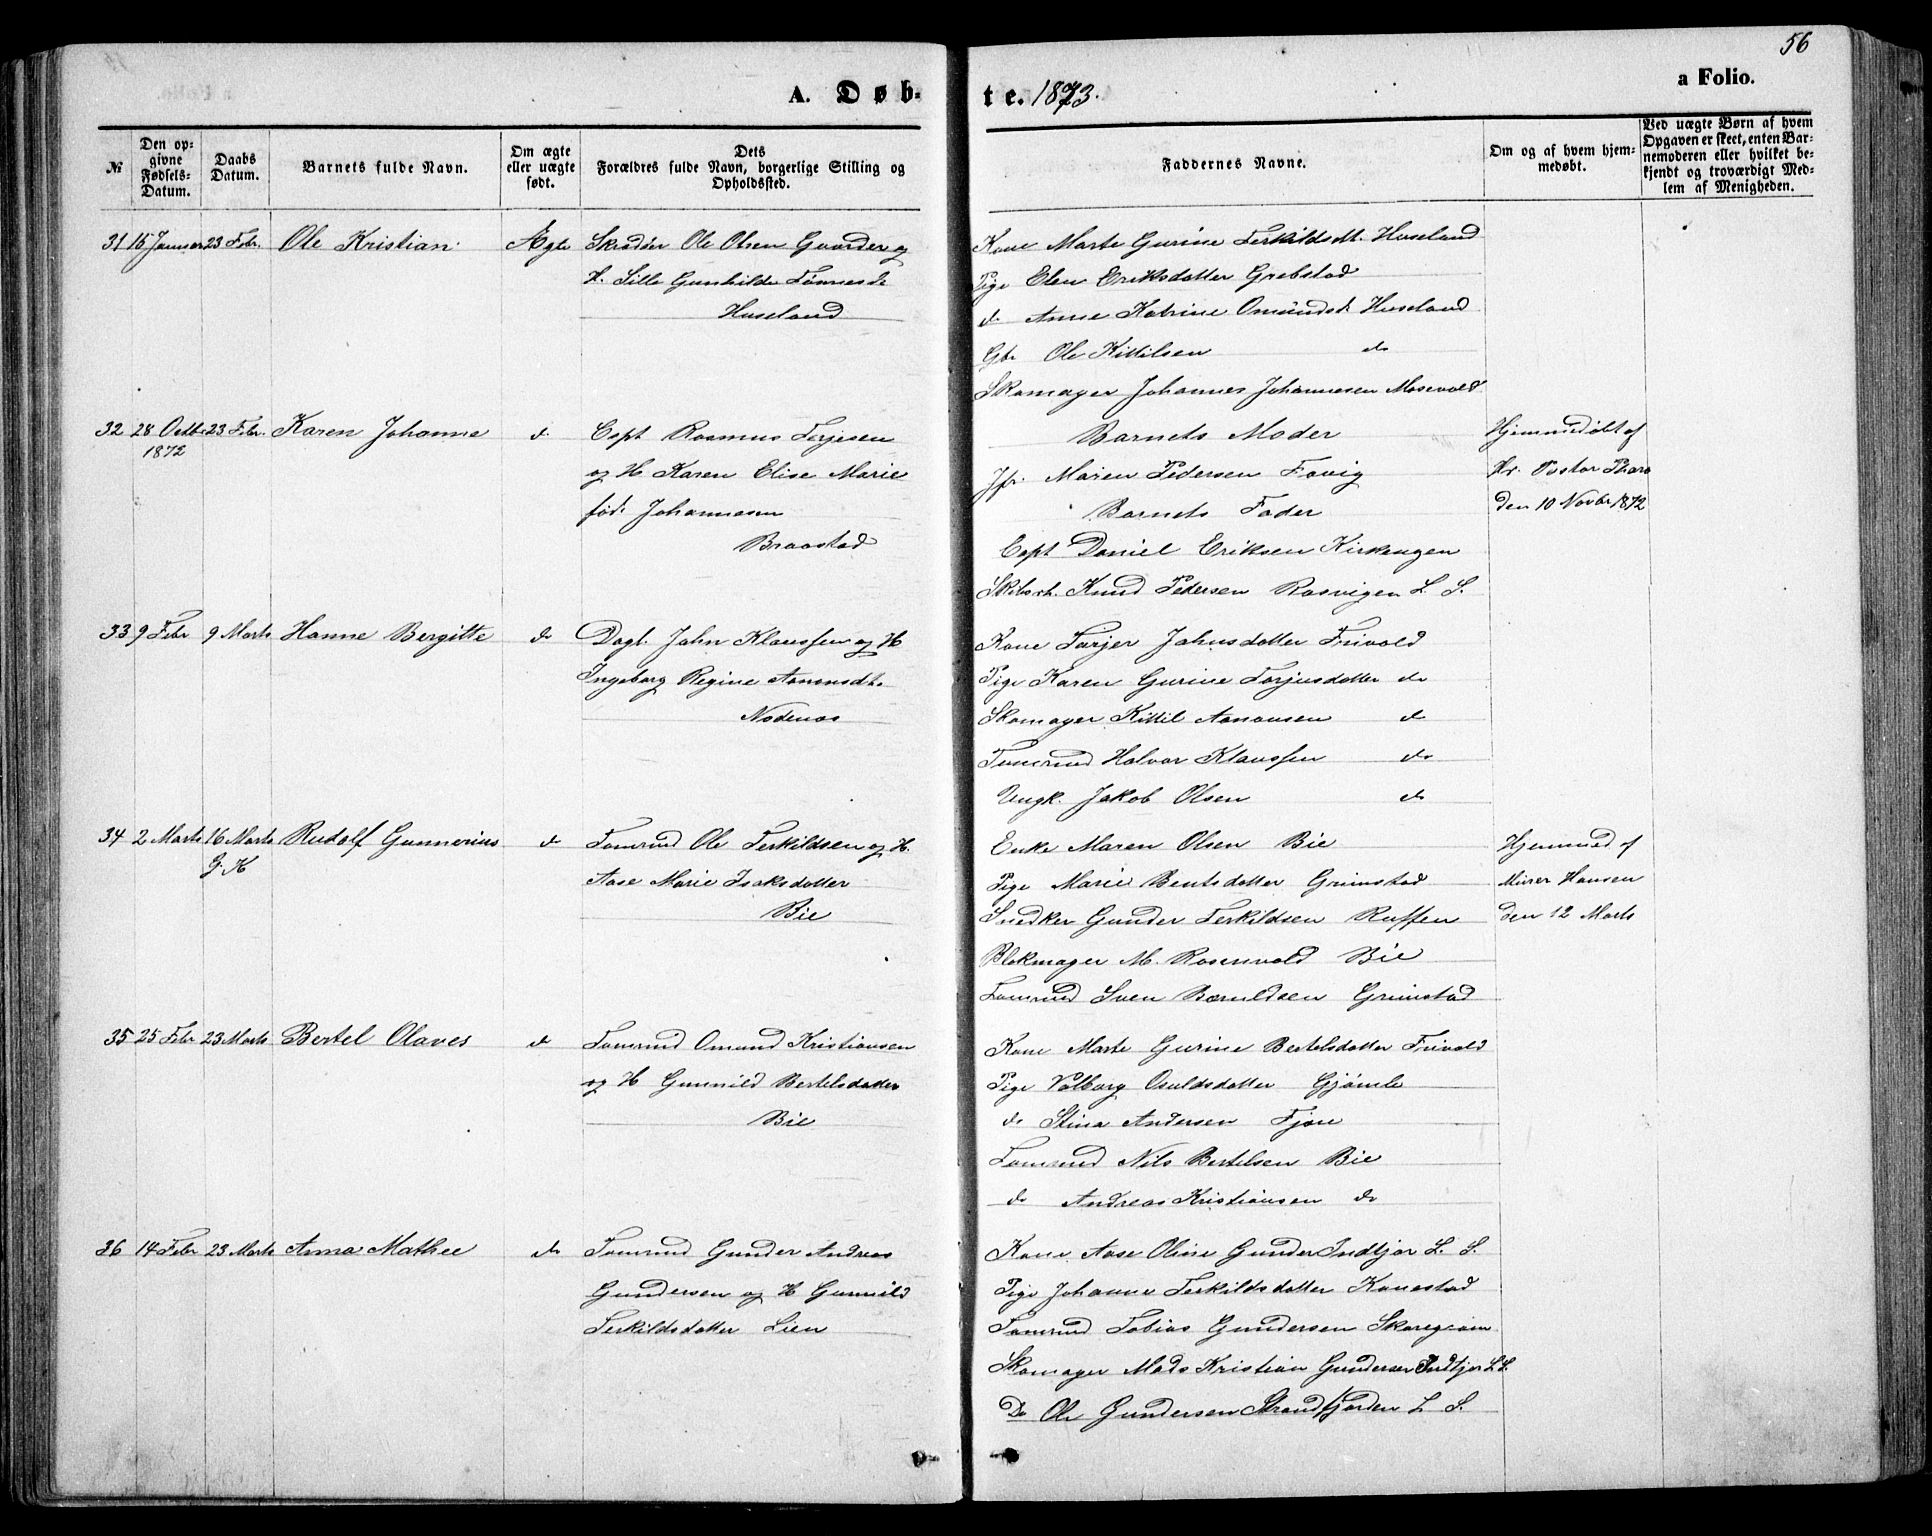 56
a Folio.
A. Døb-
te. 1873.
№
Den op-
givne
Fødsels-
Datum.
Daabs
Datum.
Barnets fulde Navn.
Om ægte
eller uægte
født.
Dets
Forældres fulde Navn, borgerlige Stilling og
Opholdssted.
Faddernes Navne.
Om og af hvem hjem-
medøbt.
Ved uægte Børn af hvem
Opgaven er skeet, enten Bar-
nemoderen eller hvilket be-
kjendt og troværdigt Med-
lem af Menigheden.
31 15 Januar 23 Febr. Ole Kristian Ægte Skrædder Ole Olsen Gaarder og
H. Sille Gunhilde Tønnesd.
Huseland
Kone Marte Gurine Terkildsd. Huseland
Pige Elen Eriksdatter Grebstad
do Anne Katrine Omundsd. Huseland
Gbr Ole Kittilsen do
Skomager Johannes Johannesen Mosevold
32 28 Octbr 23 Febr. Karen Johanne do Capt Rasmus Terjesen
1872
og H Karen Elise Marie
fød. Johannesen
Braastad
Barnets Moder
Jfr. Maren Pedersen Favig
Barnets Fader
Capt Daniel Eriksen Kirkengen
Skibsrh. Knud Pedersen Rosvigen L. S.
Hjemmedøbt af
Hr. Pastor Tharo
den 10 Novbr 1872
33 9 Febr 9 Marts Hanne Bergitte do Dagl. John Klaussen og H
Ingeborg Regine Aanensdt.
Nodenes
Kone Torjer Jahnsdatter Frivold
Pige Karen Gurine Torjusdatter do
Skomager Kittil Aanonsen do
Tømrmd Halvor Klaussen do
Ungk. Jakob Olsen do
34 2 Marts 16 Marts Rudolf Gunnerius do Tømrmd Ole Terkildsen og H.
G. K
Aase Marie Isaksdatter
Bie
Enke Maren Olsen Bie
Pige Marie Bentsdatter Grimstad
Snedker Gunder Terkildsen Roffen
Blokmager M. Rosenvold Bie
Tømrmd Sven Bæruldsen Grimstad
Hjemmed af
Murer Hansen
den 12 Marts
35 25 Febr 23 Marts Bertel Olaves do Tømrmd Omund Kristiansen
og H Gunnild Bertelsdatter
Bie
Kone Marte Gurine Bertelsdatter Frivold
Pige Valborg Osuldsdatter Gjømle
do Stina Andersen Fjære
Tømrmd Nils Bertelsen Bie
do Andreas Kristiansen do
36 14 Febr 23 Marts Anna Mathee do Tømrmd Gunder Andreas
Gundersen og H Gunnild
Terkildsdatter Lien
Kone Aase Oline Gunder Indtjor L. S.
Pige Johanne Terkildsdatter Konestad
Tømrmd Tobias Gundersen Skaregrøm
Skomager Mads Kristian Gundersen Indtjor L S.
Do Ole Gundersen Strandfjorden L S.